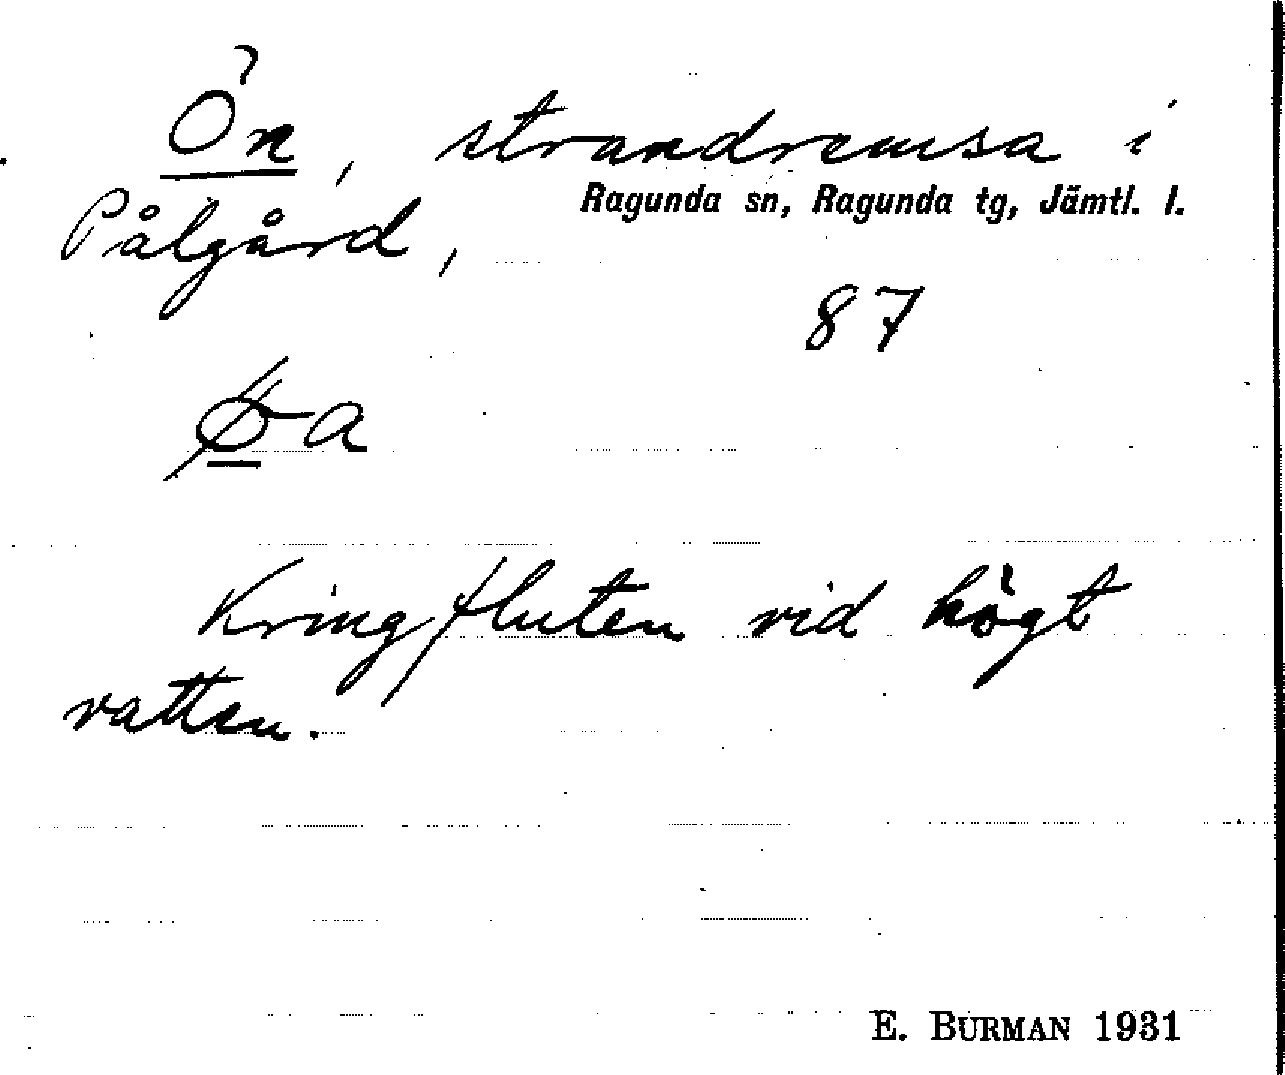 Ön, strandremsa i
Ragunda sn, Ragunda tg, Jämtl. l.
Pålgård,
87
Kringfluten vid högt
vatten.
E. BURMAN 1931